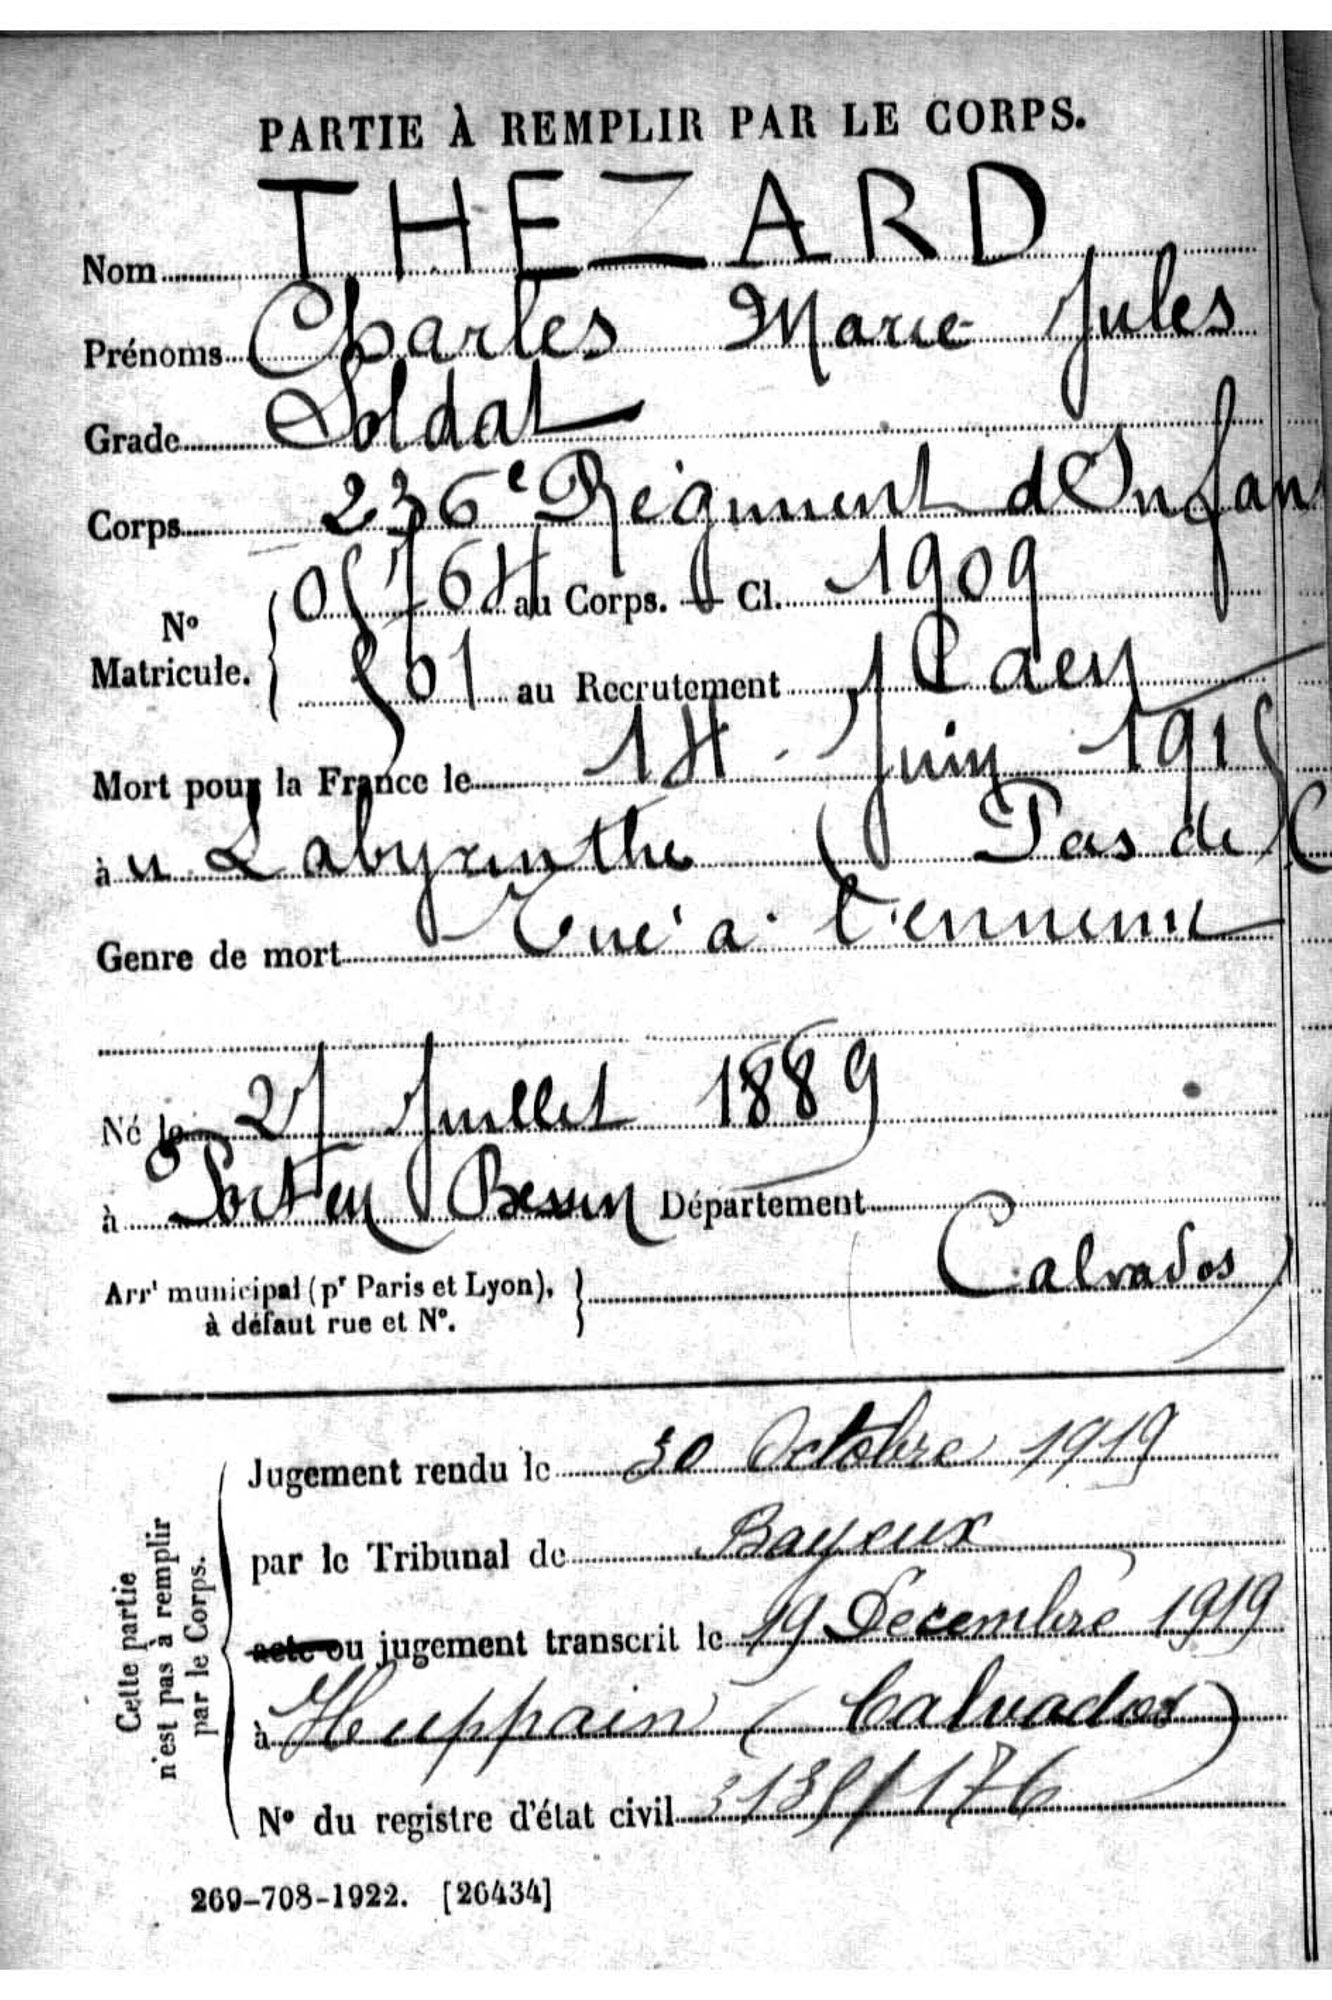 PARTIE À REMPLIR PAR LE CORPS.
Nom THEZARD
Prénoms Charles Marie Jules
Grade Soldat
Corps 236e Régiment d'Infan
N° Matricule. 05764 au Corps. Cl. 1909
501 au Recrutement Caen
Mort pour la France le 14 Juin 1915
à u Labyrinthe ( Pas de C
Genre de mort Tué à l'ennemi
Né le 27 Juillet 1889
à Port en Bessin Département
Calvados
Arrt municipal (pr Paris et Lyon),
à défaut rue et N°.
Cette partie
n'est pas à remplir
par le Corps.
Jugement rendu le 30 Octobre 1919
par le Tribunal de Bayeux
acte ou jugement transcrit le 19 Décembre 1919
à Huppain (Calvados)
N° du registre d'état civil
269-708-1922. [26434]